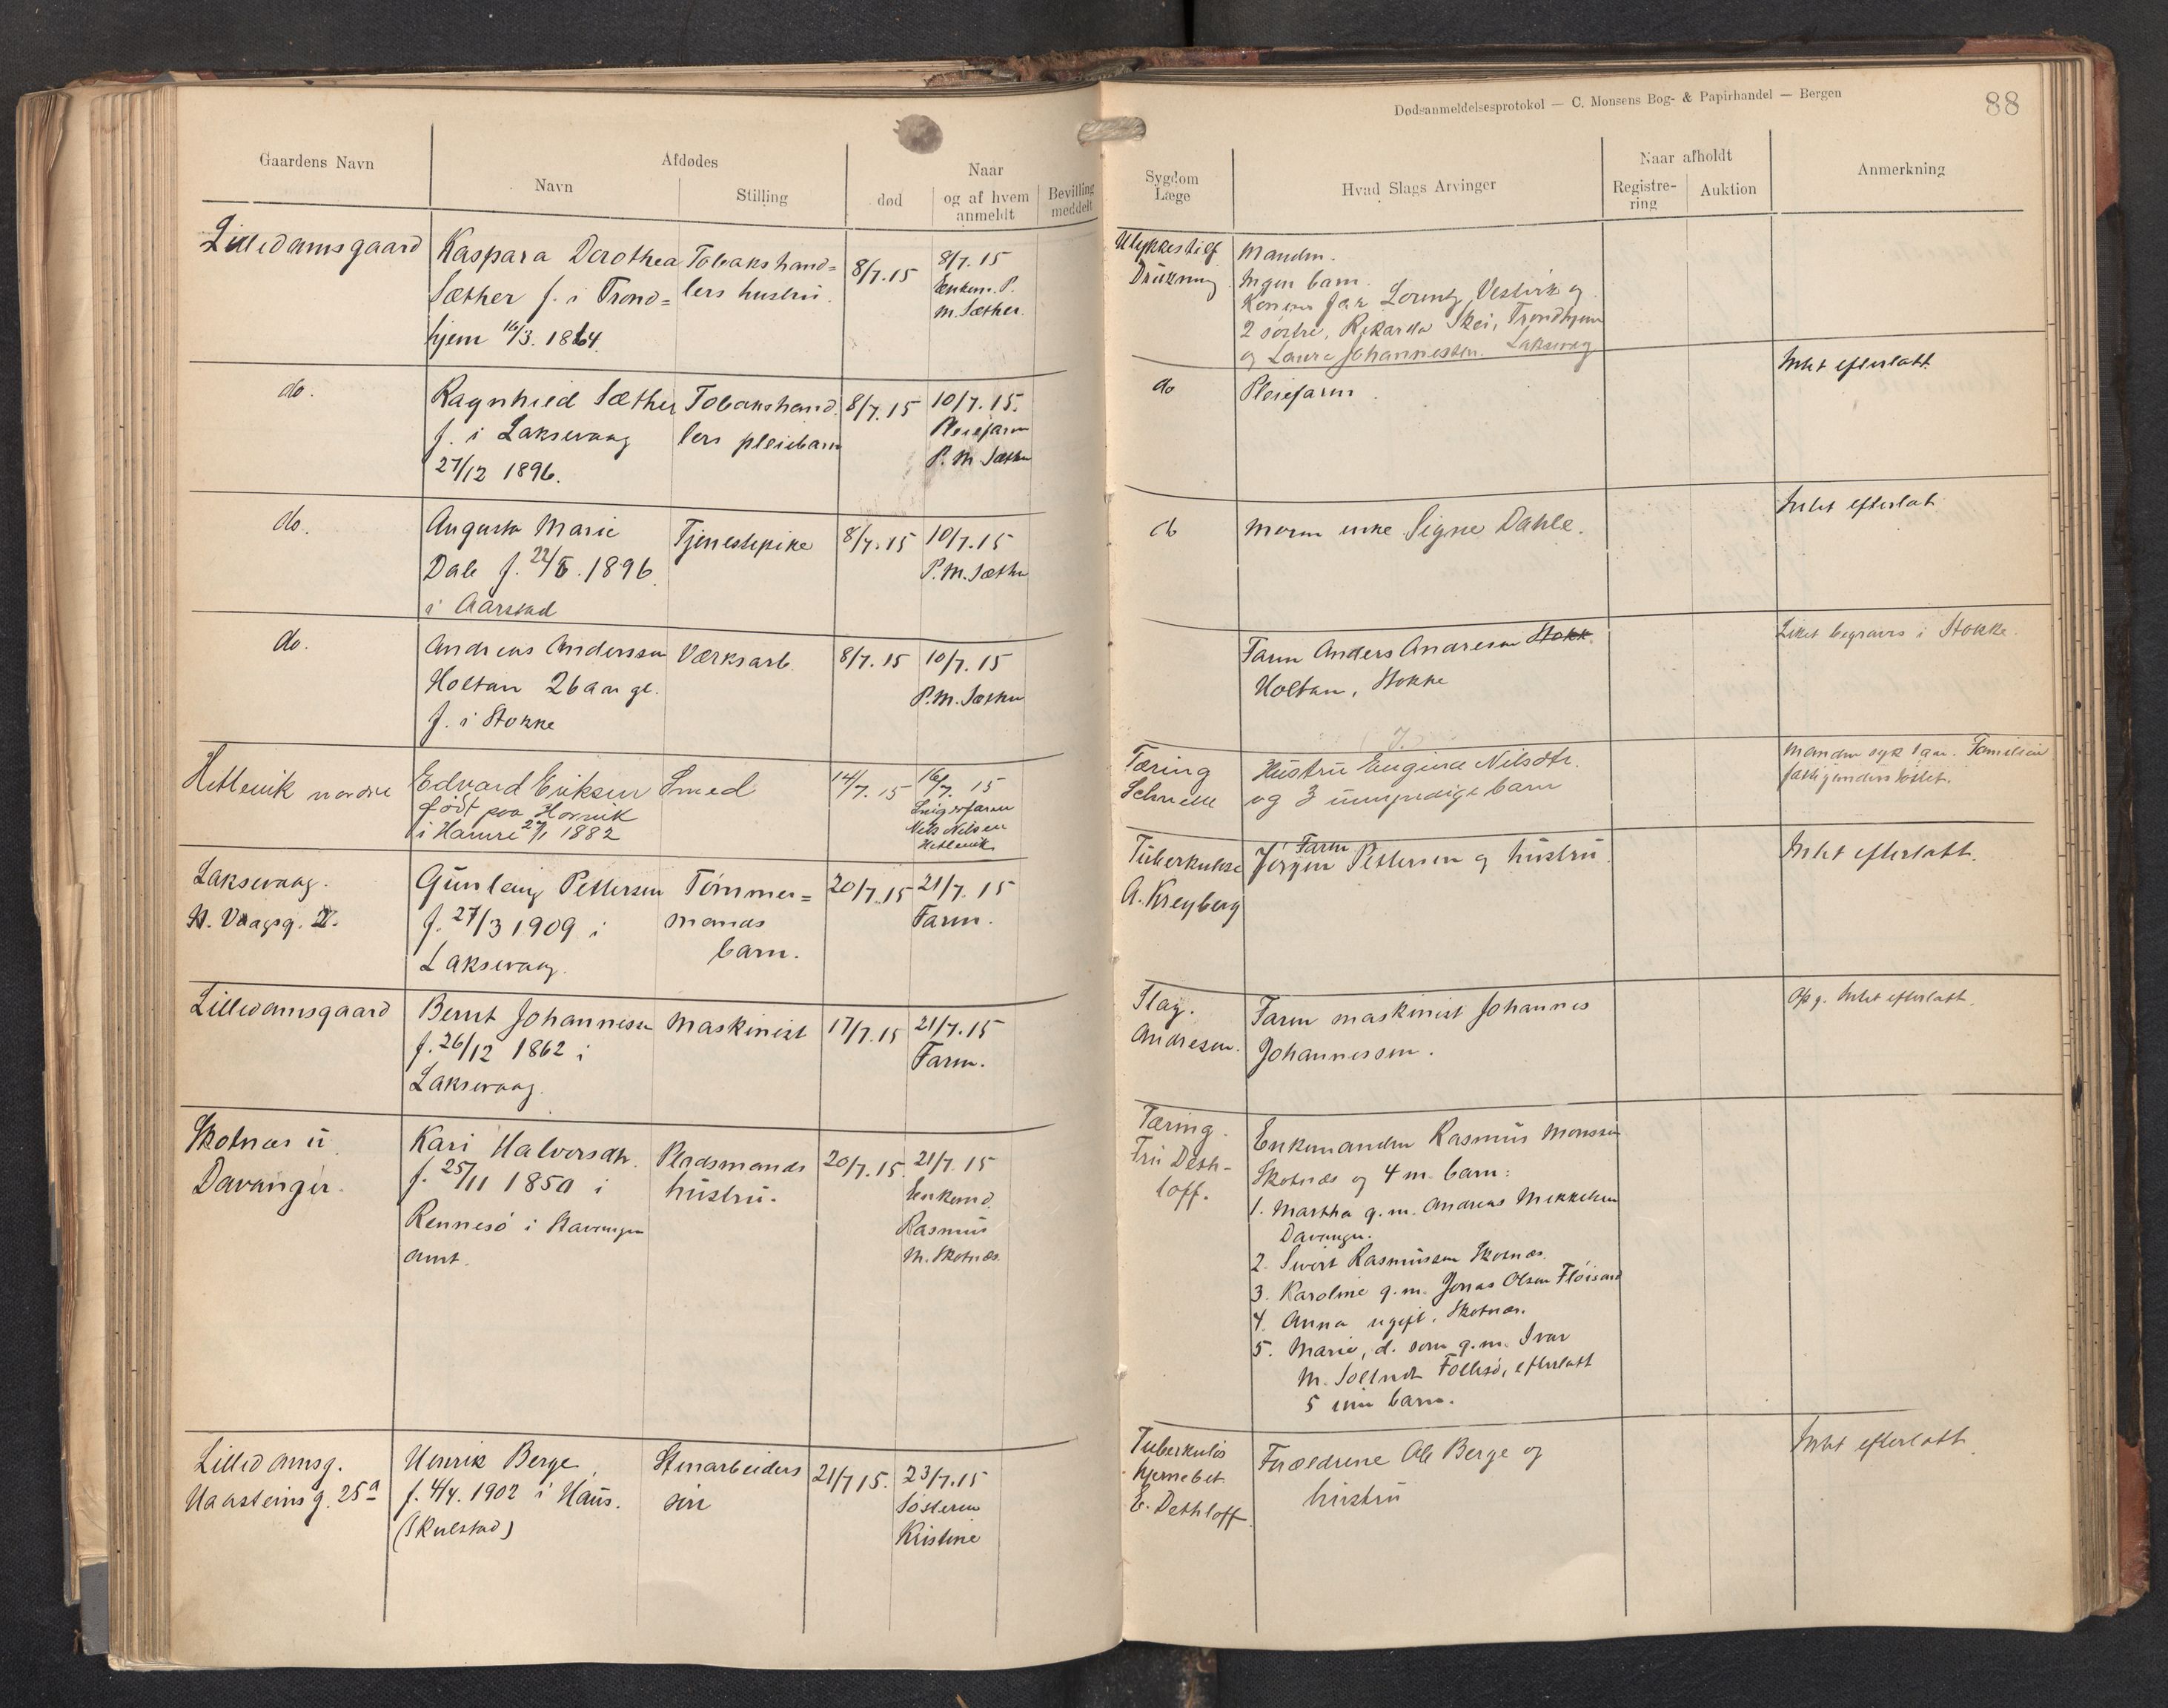 Dødsanmeldelsesprotokol — C. Monsens Bog- & Papirhandel — Bergen
88
Gaardens Navn
Afdødes
Navn
Stilling
Naar
død
og af hvem
anmeldt
Bevilling
meddelt
Sygdom
Læge
Hvad Slags Arvinger
Naar afholdt
Registre-
ring
Auktion
Anmerkning
Lilledamsgaard
Kaspara Dorothea
Sæther f. i Trond=
hjem 16/3. 1864.
Tobakshand=
lers hustru.
8/7.15
8/7. 15
Enkem. P.
M. Sæther.
Ulykkestilf
Drukning
Manden.
Ingen barn.
Lorentz Vestvik og
2 søstre, Rikarda Skei, Trondhjem
og Laura Johannessen. Laksevaag
do.
Ragnhild Sæther
f. i Laksevaag
27/12 1896.
Tobakshand
lers pleiebarn
8/7.15
10/7.15.
Pleiefaren
P. M. Sæther
do
Pleiefaren.
Intet efterlatt.
do.
Augusta Marie
Dale f. 22/5. 1896
i Aarstad
Tjenestepike
8/7.15
10/7.15
P. M. Sæther
do
Moren enke Signe Dahle.
Intet efterlat
do.
Andreas Anderssen
Holtan 26 aar gl.
f. i Stokke
Værksarb.
8/7.15
10/7.15
P. M. Sæther
Faren Anders Andresen Stokk
Holtan, Stokke
Liket begraves i Stokke.
Hetlevik nordre
Edvard Eriksen
født paa Horvik
i Hamre 27/1 1882
Smed
14/7. 15
16/7. 15
Svigerfaren
Nils Nilsen
Hetlevik
Tæring
Schnelle
Hustru Eugina Nilsdtr.
og 3 umyndige barn
Manden syk 1 aar. Familien
Laksevaag.
N. Vaagsg. 2.
Gunlaug Pettersen
f. 27/3 1909 i
Laksevaag.
Tømmer=
mands
barn.
20/7.15
21/7. 15
Faren.
Tuberkulose
A. Kreyberg
Faren
Jørgen Pettersen og hustru.
Intet efterlatt.
Lilledamsgaard
Bernt Johannesen
f. 26/12 1862 i
Laksevaag.
Maskinist
17/7.15
21/7.15
Faren.
Slag.
Andresen.
Faren maskinist Johannes
Johannessen.
Opg. Intet efterlatt.
Skotnæs u
Davanger.
Kari Halvorsdtr.
f. 25/11 1850 i
Rennesö i Stavanger
amt.
Pladsmands
hustru.
20/7.15.
21/7. 15
Enkemd.
Rasmus
M. Skotnæs.
Tæring.
Fru Deth-
loff.
Enkemanden Rasmus Monssen
Skotnæs og 4 m. barn:
1. Martha g.m. Andreas Mikkelsen
Davanger.
2. Sivert Rasmussen Skotnæs.
3. Karoline g.m. Jonas Olsen Fløisand
4. Anna ugift, Skotnæs.
5. Marie, d. som g.m. Ivar
M. Follesø, efterlatt
5 um barn.
Lilledamsg.
Haasteinsg. 25a
Henrik Berge
f. 4/4. 1902 i Haus.
(Skulstad)
Stenarbeiders
søn
21/7 15.
23/7.15
Søsteren
Kristine
Tuberkuløs
hjernebet.
E. Dethloff.
Forældrene Ole Berge og
hustru
Intet efterlatt.